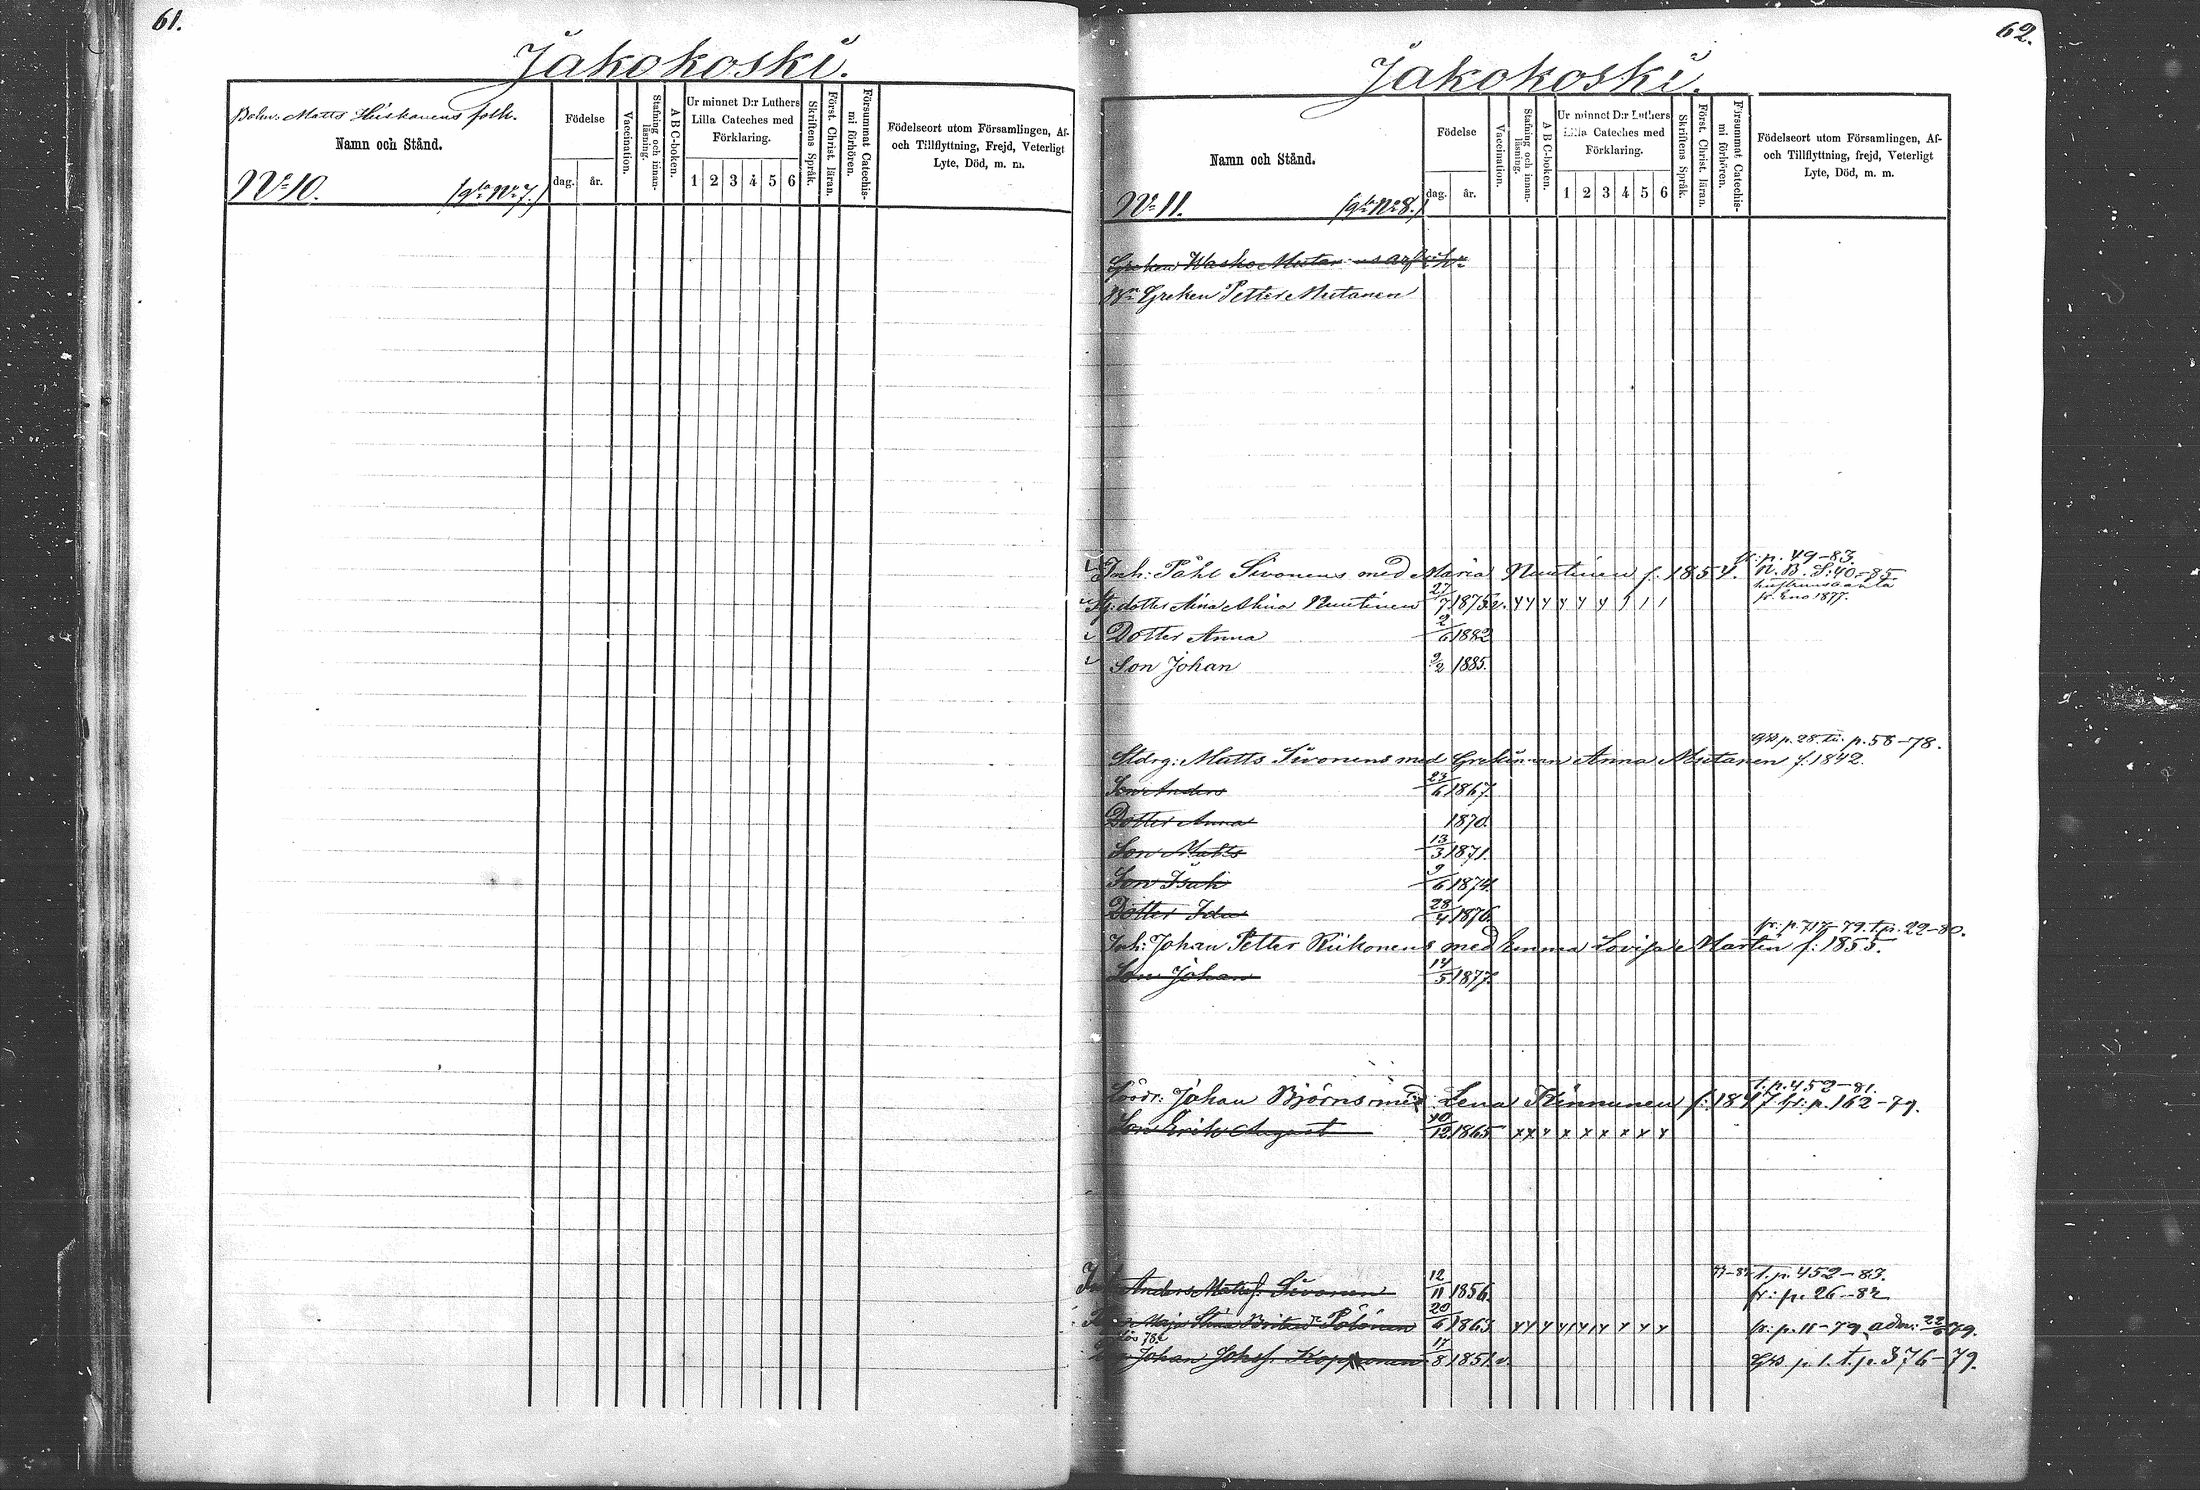 61.
Jakokoski.
Matts Hiskanens folk.
Namn och Stånd.
Födelse
dag.
år.
Vaccination.
Stafning och innan-läsning.
A B C-boken.
Ur minnet D:r Luthers
Lilla Cateches med
Förklaring.
1 2 3 4 5 6
Skriftens Språk.
Först. Christ. läran.
Försummat Catechis-
mi förhören.
Födelseort utom Församlingen, Af-
och Tillflyttning, Frejd, Veterligt
Lyte, Död, m. m.
No 10.
No 7.)
62.
Jakokoski.
Namn och Stånd.
Födelse
dag.
år.
Vaccination.
Stafning och innan-läsning.
A B C-boken.
Ur minnet D:r Luthers
Lilla Cateches med
Förklaring.
1 2 3 4 5 6
Skriftens Språk.
Först. Christ. läran.
Försummat Catechis-
mi förhören.
Födelseort utom Församlingen, Af-
och Tillflyttning, frejd, Veterligt
Lyte, Död, m. m.
No 11.
No 8.)
Greken Wasko Mutanens
Greken Petter Mutanen
fr: p. 49-83.
Inh: Påhl Sivonens med Maria Nuutinen f. 1854. N. B. S: 40-85.
dotter Alina Nuutinen 27/7 1875 v. y y y y y y
fr. Eno 1877.
Dotter Anna 2/6 1882
Son Johan 9/2 1885.
p. 28. p. 58-78.
Matts Sivonens med Grekinnan Anna Mutanen f. 1842.
Son Anders 23/6 1867.
Dotter Anna 1870.
Son Matts 13/3 1871.
Son Isak 9/6 1874.
Dotter Ida 28/4 1876.
fr: p. 717-79. t. p. 22-80.
Inh: Johan Petter Riikonens med Emma Lovisa Martin f: 1855.
Son Johan 14/5 1877.
t. p. 452-81.
Johan Björns med Lena Kinnunen f: 1847 fr: p. 162-79.
Son Erik August 12 1865 x x y x x x x x y
Anders Matts. Sivonen 12/11 1856. t. p. 452-83.
fr: p. 26-82
Maja Stina Pölönen 20/6 1863 y y y y y y y y y fr: p. 11-79, adm: 22/6 79.
Johan Johsf. Kopponen 17/8 1851. v. p. 1. t. p. 376-79.